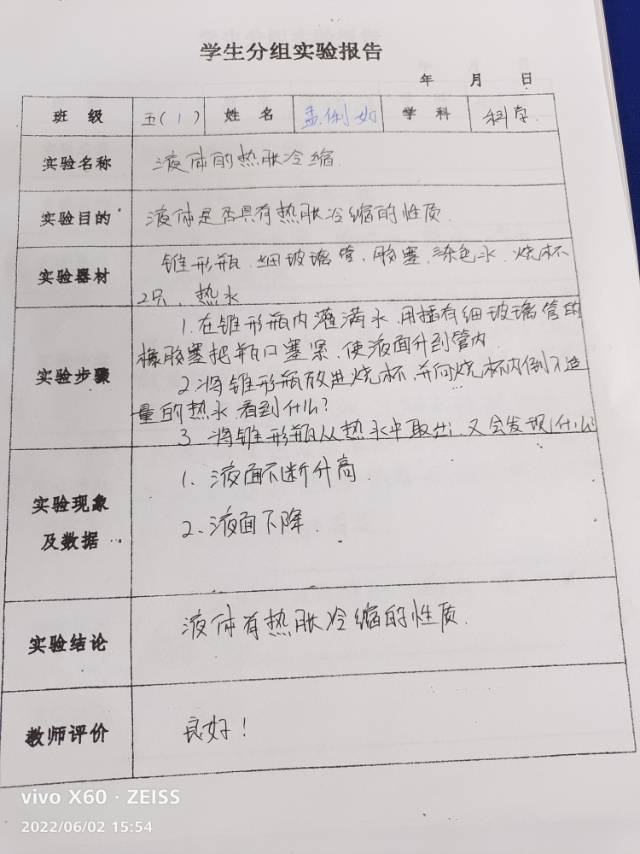 学生分组实验报告
年 月 日
班 级 五(1) 姓 名 孟俐如 学 科 科学
实验名称 液体的热胀冷缩
实验目的 液体是否具有热胀冷缩的性质
实验器材 锥形瓶、细玻璃管、胶塞、染色水、烧杯
2只、热水
实验步骤 1.在锥形瓶内灌满水,用插有细玻璃管的
橡胶塞把瓶口塞紧,使液面升到管内
2.将锥形瓶放进烧杯,并向烧杯内倒入适
量的热水,看到什么?
3.将锥形瓶从热水中取出,又会发现什么
实验现象
及数据
1、液面不断升高
2、液面下降
实验结论 液体有热胀冷缩的性质.
教师评价 良好!
vivo X60 · ZEISS
2022/06/02 15:54